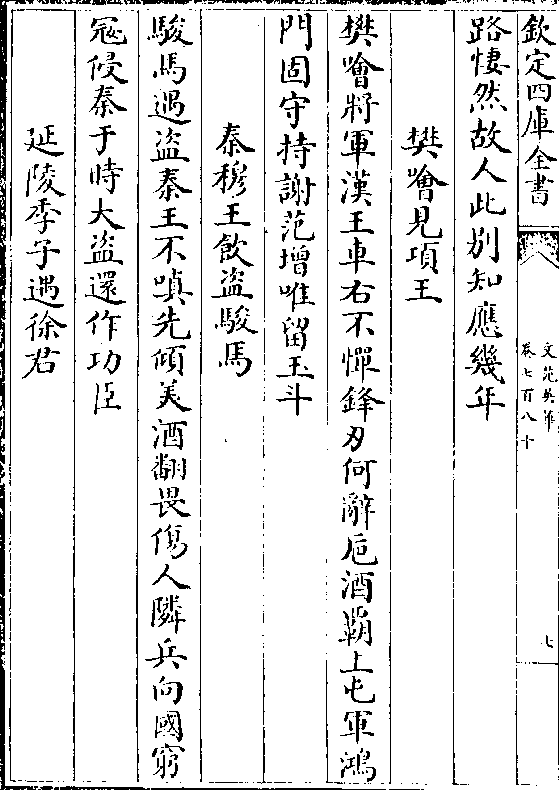 欽定四庫全書
文苑英華
卷七百八十
七
路悽然故人此別知應幾年
樊噲見項王
樊噲將軍漢王車右不憚鋒刃何辭巵酒霸上屯軍鴻
門固守持謝范增唯留玉斗
秦穆王飲盜駿馬
駿馬遇盜秦王不嗔先傾美酒翻畏傷人隣兵向國窮
冦侵秦于時大盜還作功臣
延陵季子遇徐君